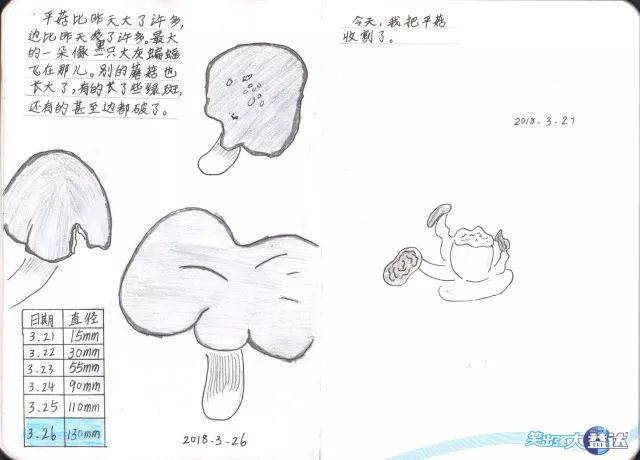 平菇比昨天大了许多,
边比昨天卷了许多。最大
的一朵像一只大灰蝙蝠
飞在那儿。别的蘑菇也
长大了,有的长了些绿斑,
还有的甚至边都破了。
日期 直径
3.21 15mm
3.22 30mm
3.23 55mm
3.24 90mm
3.25 110mm
3.26 130mm
2018-3-26
今天,我把平菇
收割了。
2018-3-27
笑出强大益达